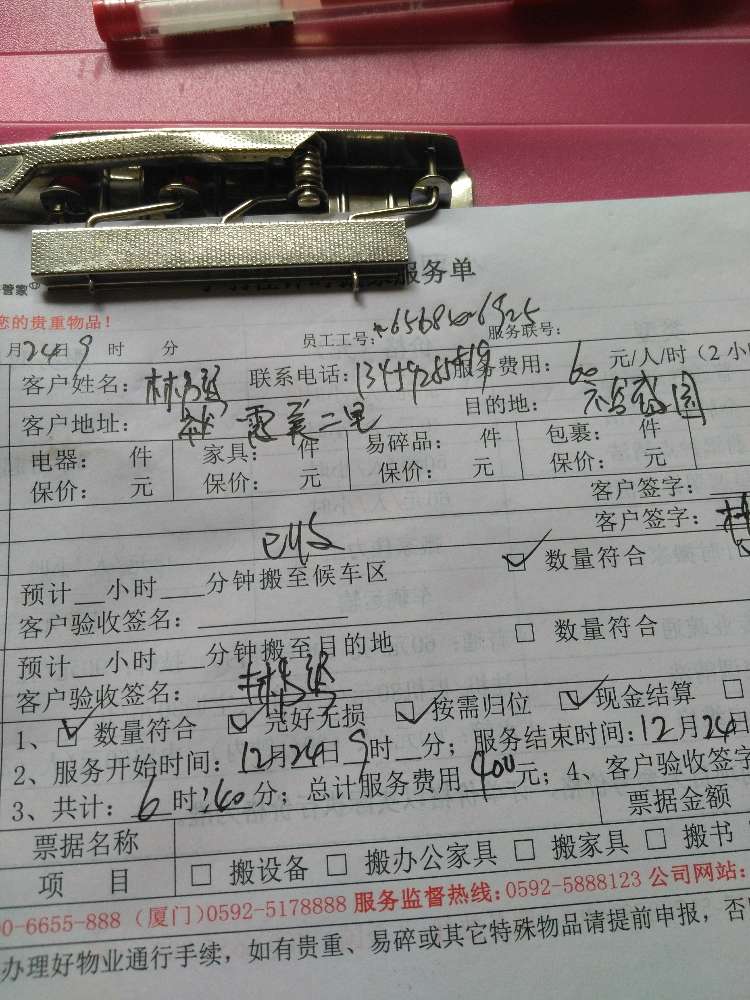 管家
服务单
您的贵重物品！
员工工号： 服务联号：
月24日9时 分
客户姓名：林 联系电话： 服务费用：60元/人/时（2小
客户地址： 霞美二里 目的地： 园
电器： 件 家具： 件 易碎品： 件 包裹： 件
保价： 元 保价： 元 保价： 元 保价： 元
客户签字：
客户签字：林
预计__小时___分钟搬至候车区 ☑ 数量符合
客户验收签名：
预计__小时___分钟搬至目的地 □ 数量符合
客户验收签名：林
1、☑ 数量符合 ☑ 完好无损 ☑ 按需归位 ☑ 现金结算 □
2、服务开始时间：12月24日9时__分；服务结束时间：12月24日
3、共计：6时40分；总计服务费用400元；4、客户验收签字
票据名称 票据金额
项 目 □ 搬设备 □ 搬办公家具 □ 搬家具 □ 搬书
0-6655-888（厦门）0592-5178888 服务监督热线：0592-5888123 公司网站：
办理好物业通行手续，如有贵重、易碎或其它特殊物品请提前申报，否